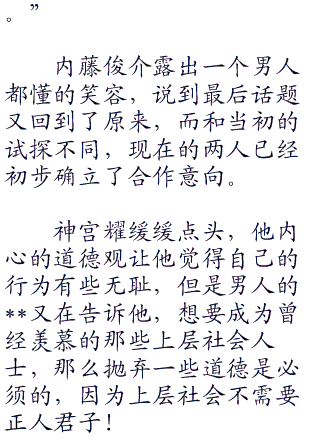 。”
内藤俊介露出一个男人
都懂的笑容，说到最后话题
又回到了原来，而和当初的
试探不同，现在的两人已经
初步确立了合作意向。
神宫耀缓缓点头，他内
心的道德观让他觉得自己的
行为有些无耻，但是男人的
**又在告诉他，想要成为曾
经羡慕的那些上层社会人
士，那么抛弃一些道德是必
须的，因为上层社会不需要
正人君子！